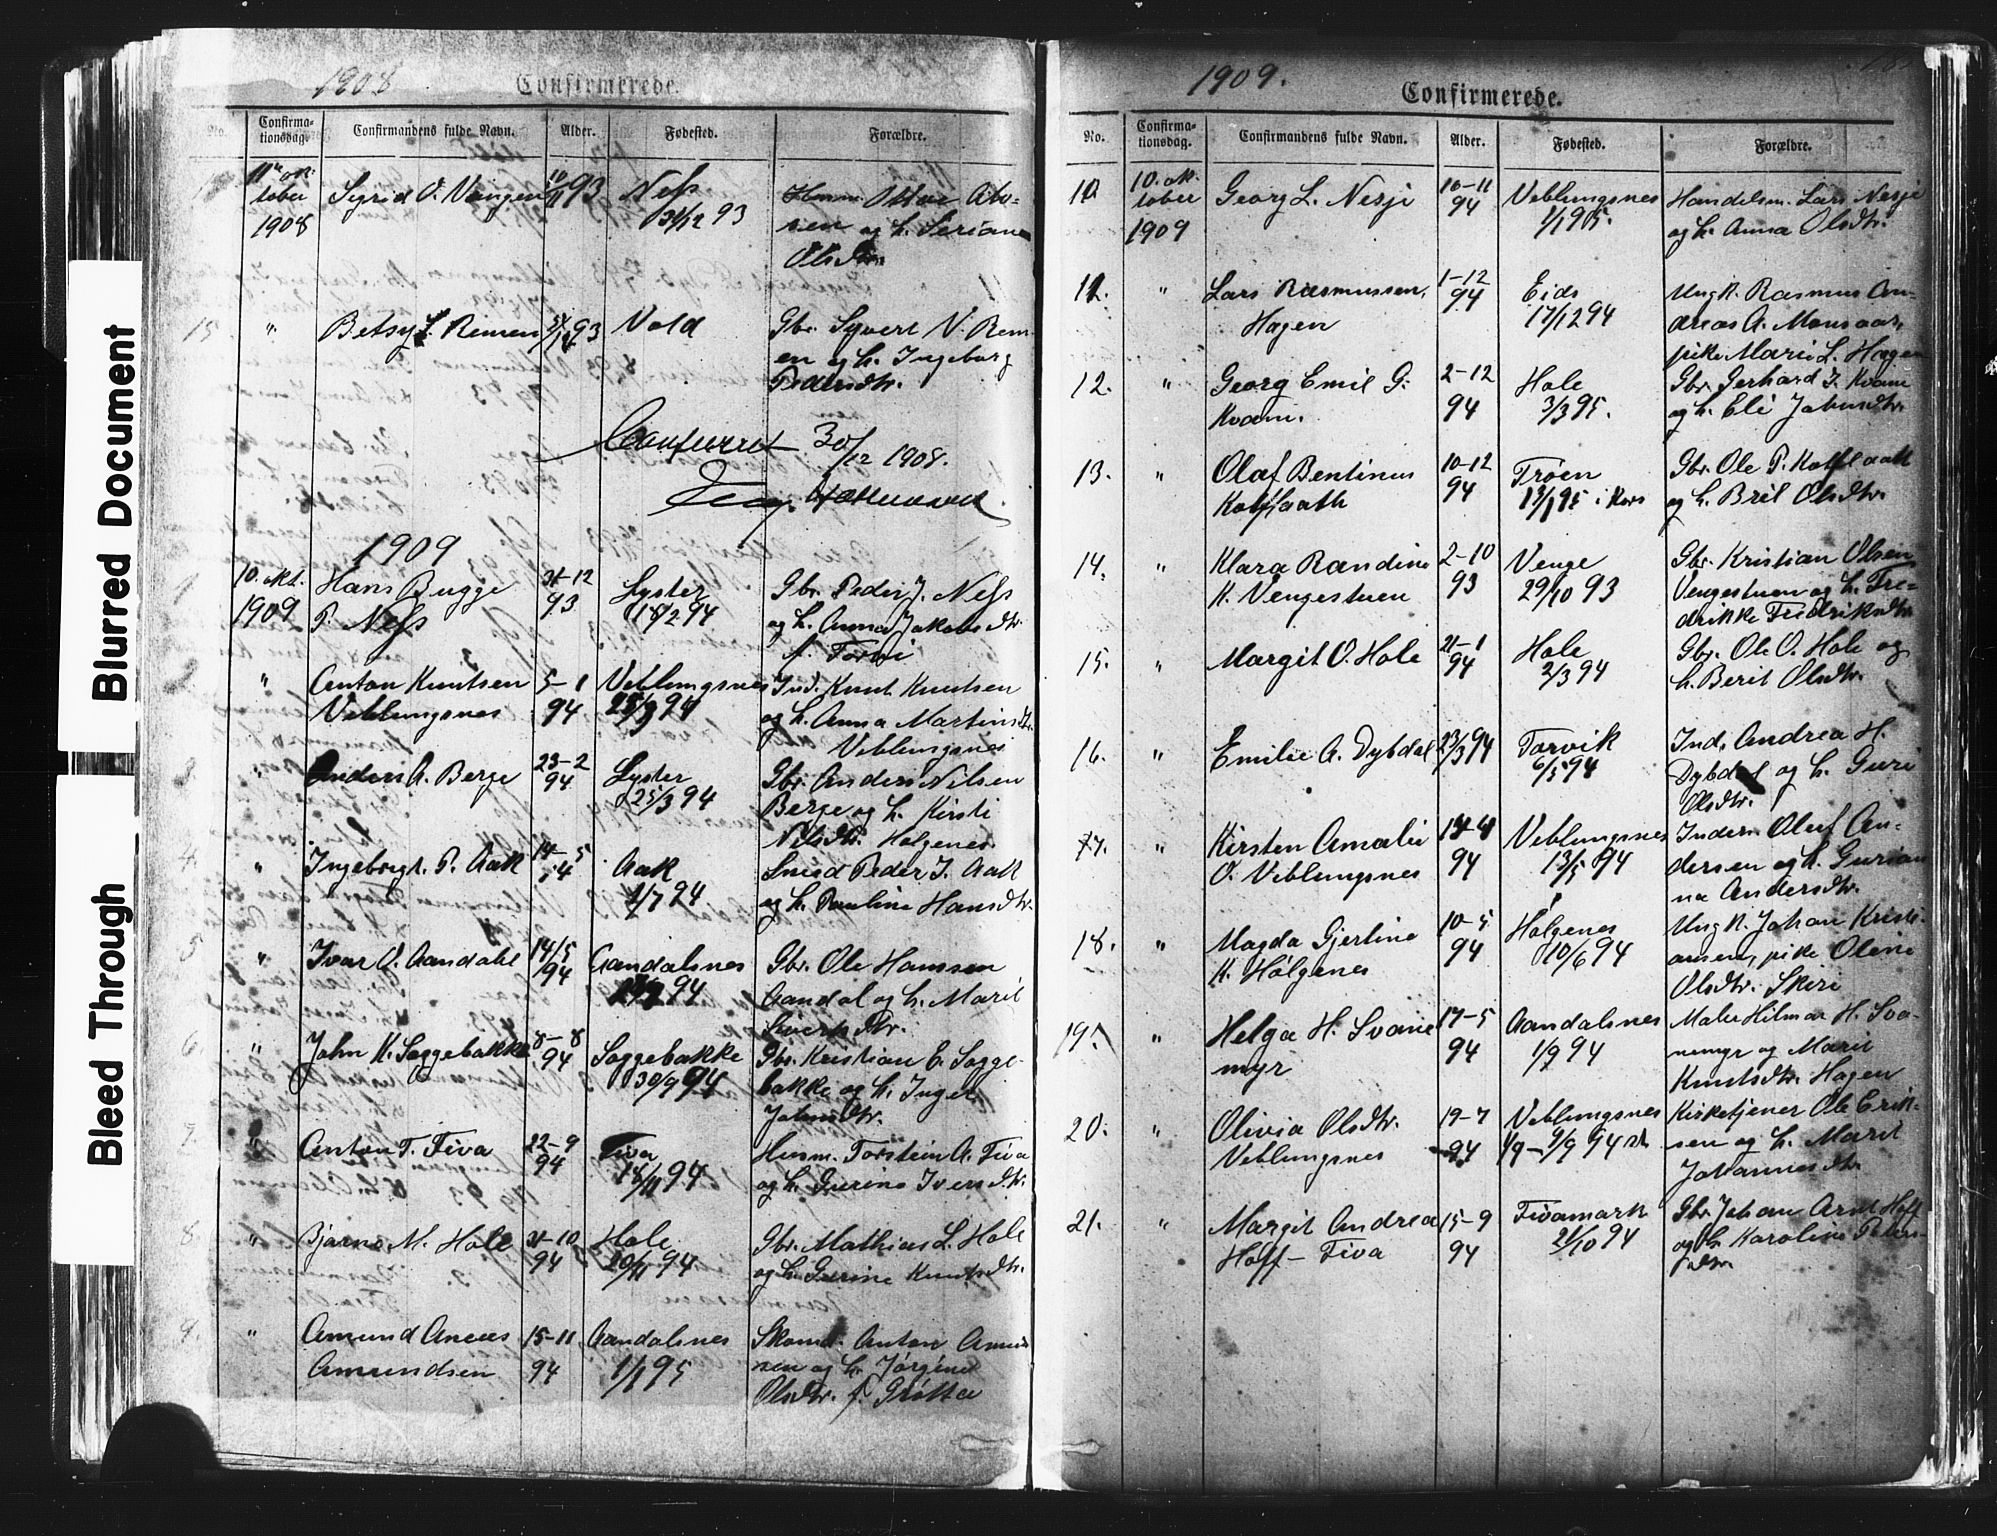 Blurred Document
Bleed Through
1908
Confirmerede.
No.
Confirma-
tionsdag.
Confirmandens fulde Navn.
Alder.
Fødested.
Forældre.
11te ok-
tober
1908
Sigrid O. Vengen
93
Ness
31/12 93
og h. Seriane
Olsdtr.
15
"
Betsy S. Remen
93
Vold
Gbr. Syvert N. Rem-
en og h. Ingeborg
Pedersdtr.
Confereret 30/12 1908.
1909
1
10. okt.
1909
Hans Bugge
P. Ness
31-12
93
Lyster
18/2 94
Gbr. Peder J. Ness
og h. Anna Jakobsdtr.
f. Torvi
2
"
Anton Knutsen
Veblungsnes
5-1
94
Veblungsnes
94
Ind. Knut Knutsen
og h. Anna Martinsdtr.
Veblungsnes
3
"
Anders A. Berge
23-2
94
Lyster
25/3 94
Gbr. Anders Nilsen
Berge og h. Kirsti
Nilsdtr. Holgenes
4
"
Ingebrigt P. Aak
14-5
94
Aak
1/7 94
Smed Peder J. Aak
og h. Pauline Hansdtr.
5
"
Ivar O. Aandahl
14/5
94
Aandalsnes
94
Gbr. Ole Hanssen
Aandal og h. Marit
Siversdtr.
6.
"
John K. Soggebakke
8-8
94
Soggebakke
30/9 94
Gbr. Kristian E. Sogge-
bakke og h. Inger
Johnsdtr.
7
"
Anton T. Fiva
22-9
94
Fiva
18/11 94
Husm. Torstein A. Fiva
og h. Gurine Iversdtr.
8
"
Bjarne M. Hole
31-10
94
Hole
20/11 94
Gbr. Mathias L. Hole
og h. Gurine Knutsdtr.
9.
"
Amund Aneus
Amundsen
15-11
94
Aandalsnes
1/1 95
Skomd. Anton Amund-
sen og h. Jørgine
Olsdtr. f. Grøtta
1909.
Confirmerede.
No.
Confirma-
tionsdag.
Confirmandens fulde Navn.
Alder.
Fødested.
Forældre.
10.
10. ok-
tober
1909
Georg L. Nesje
10-11
94
Veblungsnes
1/1 95.
Handelsm. Lars Nesje
og h. Anna Olsdtr.
11.
"
Lars Rasmussen,
Hagen
1-12
94
Eids
17/12 94
Ungk. Rasmus An-
dreas A. Monsaas,
pike Marie L. Hagen
12.
"
Georg Emil G.
Kvam.
2-12
94
Hole
3/3 95.
Gbr. Gerhard J. Kvam
og h. Eli Johnsdtr.
13.
"
Olaf Bentinus
Kolflaath
10-12
94
Trøen
13/1 95 i Kors
Gbr. Ole P. Kolflaath
og h. Brit Olsdtr.
14.
"
Klara Randine
K. Vengestuen
2-10
93
Venge
29/10 93
Gbr. Kristian Olsen
Vengestuen og h. Fre-
drikke Fredriksdtr.
15.
"
Margit O. Hole
21-1
94
Hole
2/3 94
Gbr. Ole O. Hole og
h. Berit Olsdtr.
16.
"
Emilie A. Dybdal
23/3 94
Torvik
6/5 94
Ind. Andrea H.
Dybdal og h. Guri
Olsdtr.
17.
"
Kirsten Amalie
O. Veblungsnes
94
Veblungsnes
13/5 94
Inders. Oluf An-
dersen og h. Gurian-
na Andersdtr.
18.
"
Magda Gjertine
K. Hølgenes
10-5
94
Hølgenes
10/6 94
Ungk. Johan Kristi-
ansen, pike Oline
Olsdtr. Skiri
19.
"
Helga H. Svane
myr
17-5
94
Aandalsnes
1/9 94
Maler Hilmar H. Sva-
nemyr og Marit
Knutsdtr. Hagen
20.
"
Olivia Olsdtr.
Veblungsnes
19-7
94
Veblungsnes
1/9 - 9/9 94 st
Kirketjener Ole Erik-
sen og h. Marit
Johannesdtr.
21.
"
Margit Andrea
Hoff - Fiva
15-9
94
Fivamark
21/10 94
Gbr. Johan Arnt Hoff
og h. Karoline Peters-
dtr.